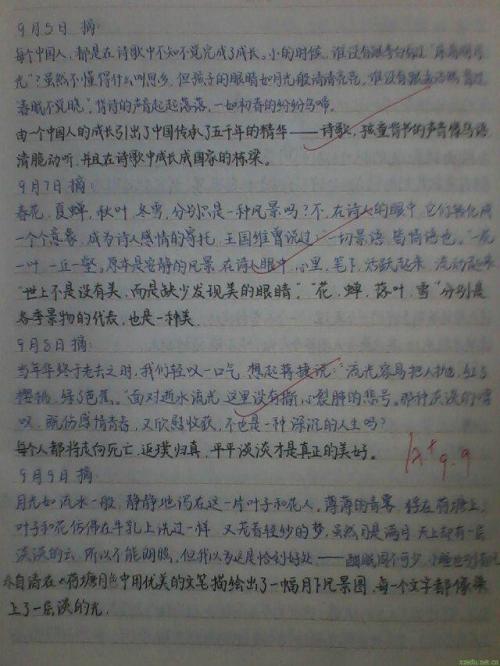 9月5日 摘:
每个中国人，都是在诗歌中不知不觉完成了成长。小的时候，谁没有跟李白看过"床前明月
光"？虽然不懂得什么叫思乡，但孩子的眼睛如月光般清清亮亮，谁没有跟孟浩然背过
春眠不觉晓"，背诗的声音起起落落，一如初春的纷纷鸟啼。
由一个中国人的成长引出了中国传承了五千年的精华——诗歌，孩童背书的声音像鸟语
清脆动听，并且在诗歌中成长成国家的栋梁。
9月7日 摘:
春花，夏蝉，秋叶，冬雪，分别只是一种风景吗？不，在诗人的眼中，它们
一个个意象，成为诗人感情的寄托，王国维曾说过："一切景语，皆情语也。"一花
一叶，一丘一壑，原本是安静的风景，在诗人眼中，心里，笔下，活跃起来，流动起来
"世上不是没有美，而是缺少发现美的眼睛"，"花，蝉，落叶，雪"分别是
各季景物的代表，也是一种美。
9月8日 摘:
当年华终于老去之时，我们轻叹一口气，想起蒋捷说："流光容易把人抛，红了
樱桃，绿了芭蕉。"面对逝水流光，这里没有撕心裂肺的悲号。那种淡淡的喟
叹，既伤感惜青春，又欣慰收获，不也是一种深沉的人生吗？
每个人都将走向死亡，返璞归真，平平淡淡才是真正的美好。
9.9
9月9日 摘:
月光如流水一般，静静地泻在这一片叶子和花上。薄薄的青雾 在荷塘上，
叶子和花仿佛在牛乳上洗过一样，又笼着轻纱的梦，虽然月是满月，天上却有一层
淡淡的云，所以不能朗照，但我以为这是恰到好处——酣眠固不可少，小睡也别有风
朱自清在《荷塘月色》中用优美的文笔描绘出了一幅月下风景图，每一个文字都像染
上了一层淡的光.